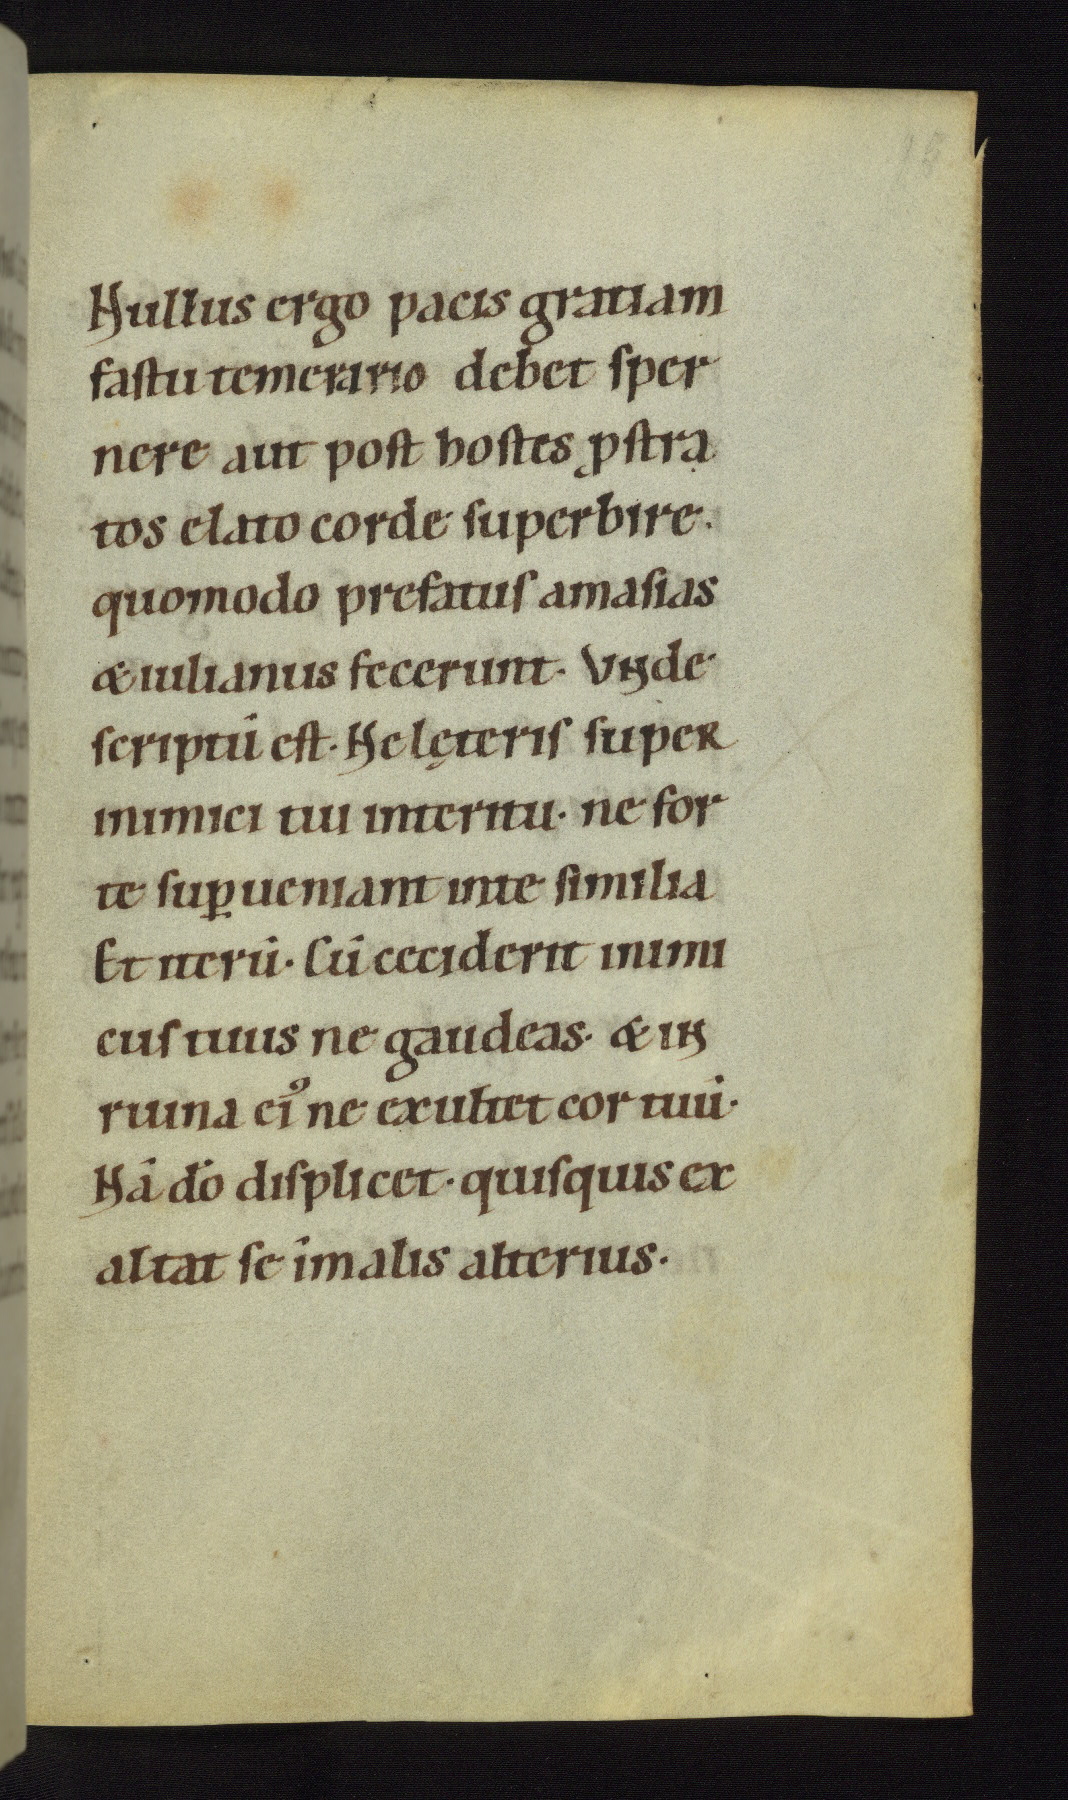 Nullus ergo pacis gratiam
faſtu temerario debet ſper
nere aut poſt hoſtes ꝓſtra
tos elato corde ſuperbire.
quomodo prefatuſ amaſias
& iulianus fecerunt. Vnde
ſcriptū eſt. Ne lęteriſ ſuper
inimici tui interitu. ne for
te ſuꝑueniant in te ſimilia
Et iterū. Cū ceciderit inimi
cuſ tuus ne gaudeas. & in
ruina ei᾿ ne exultet cor tuū.
Nā dō diſplicet. quiſquis ex
altat ſe ī malis alterius.